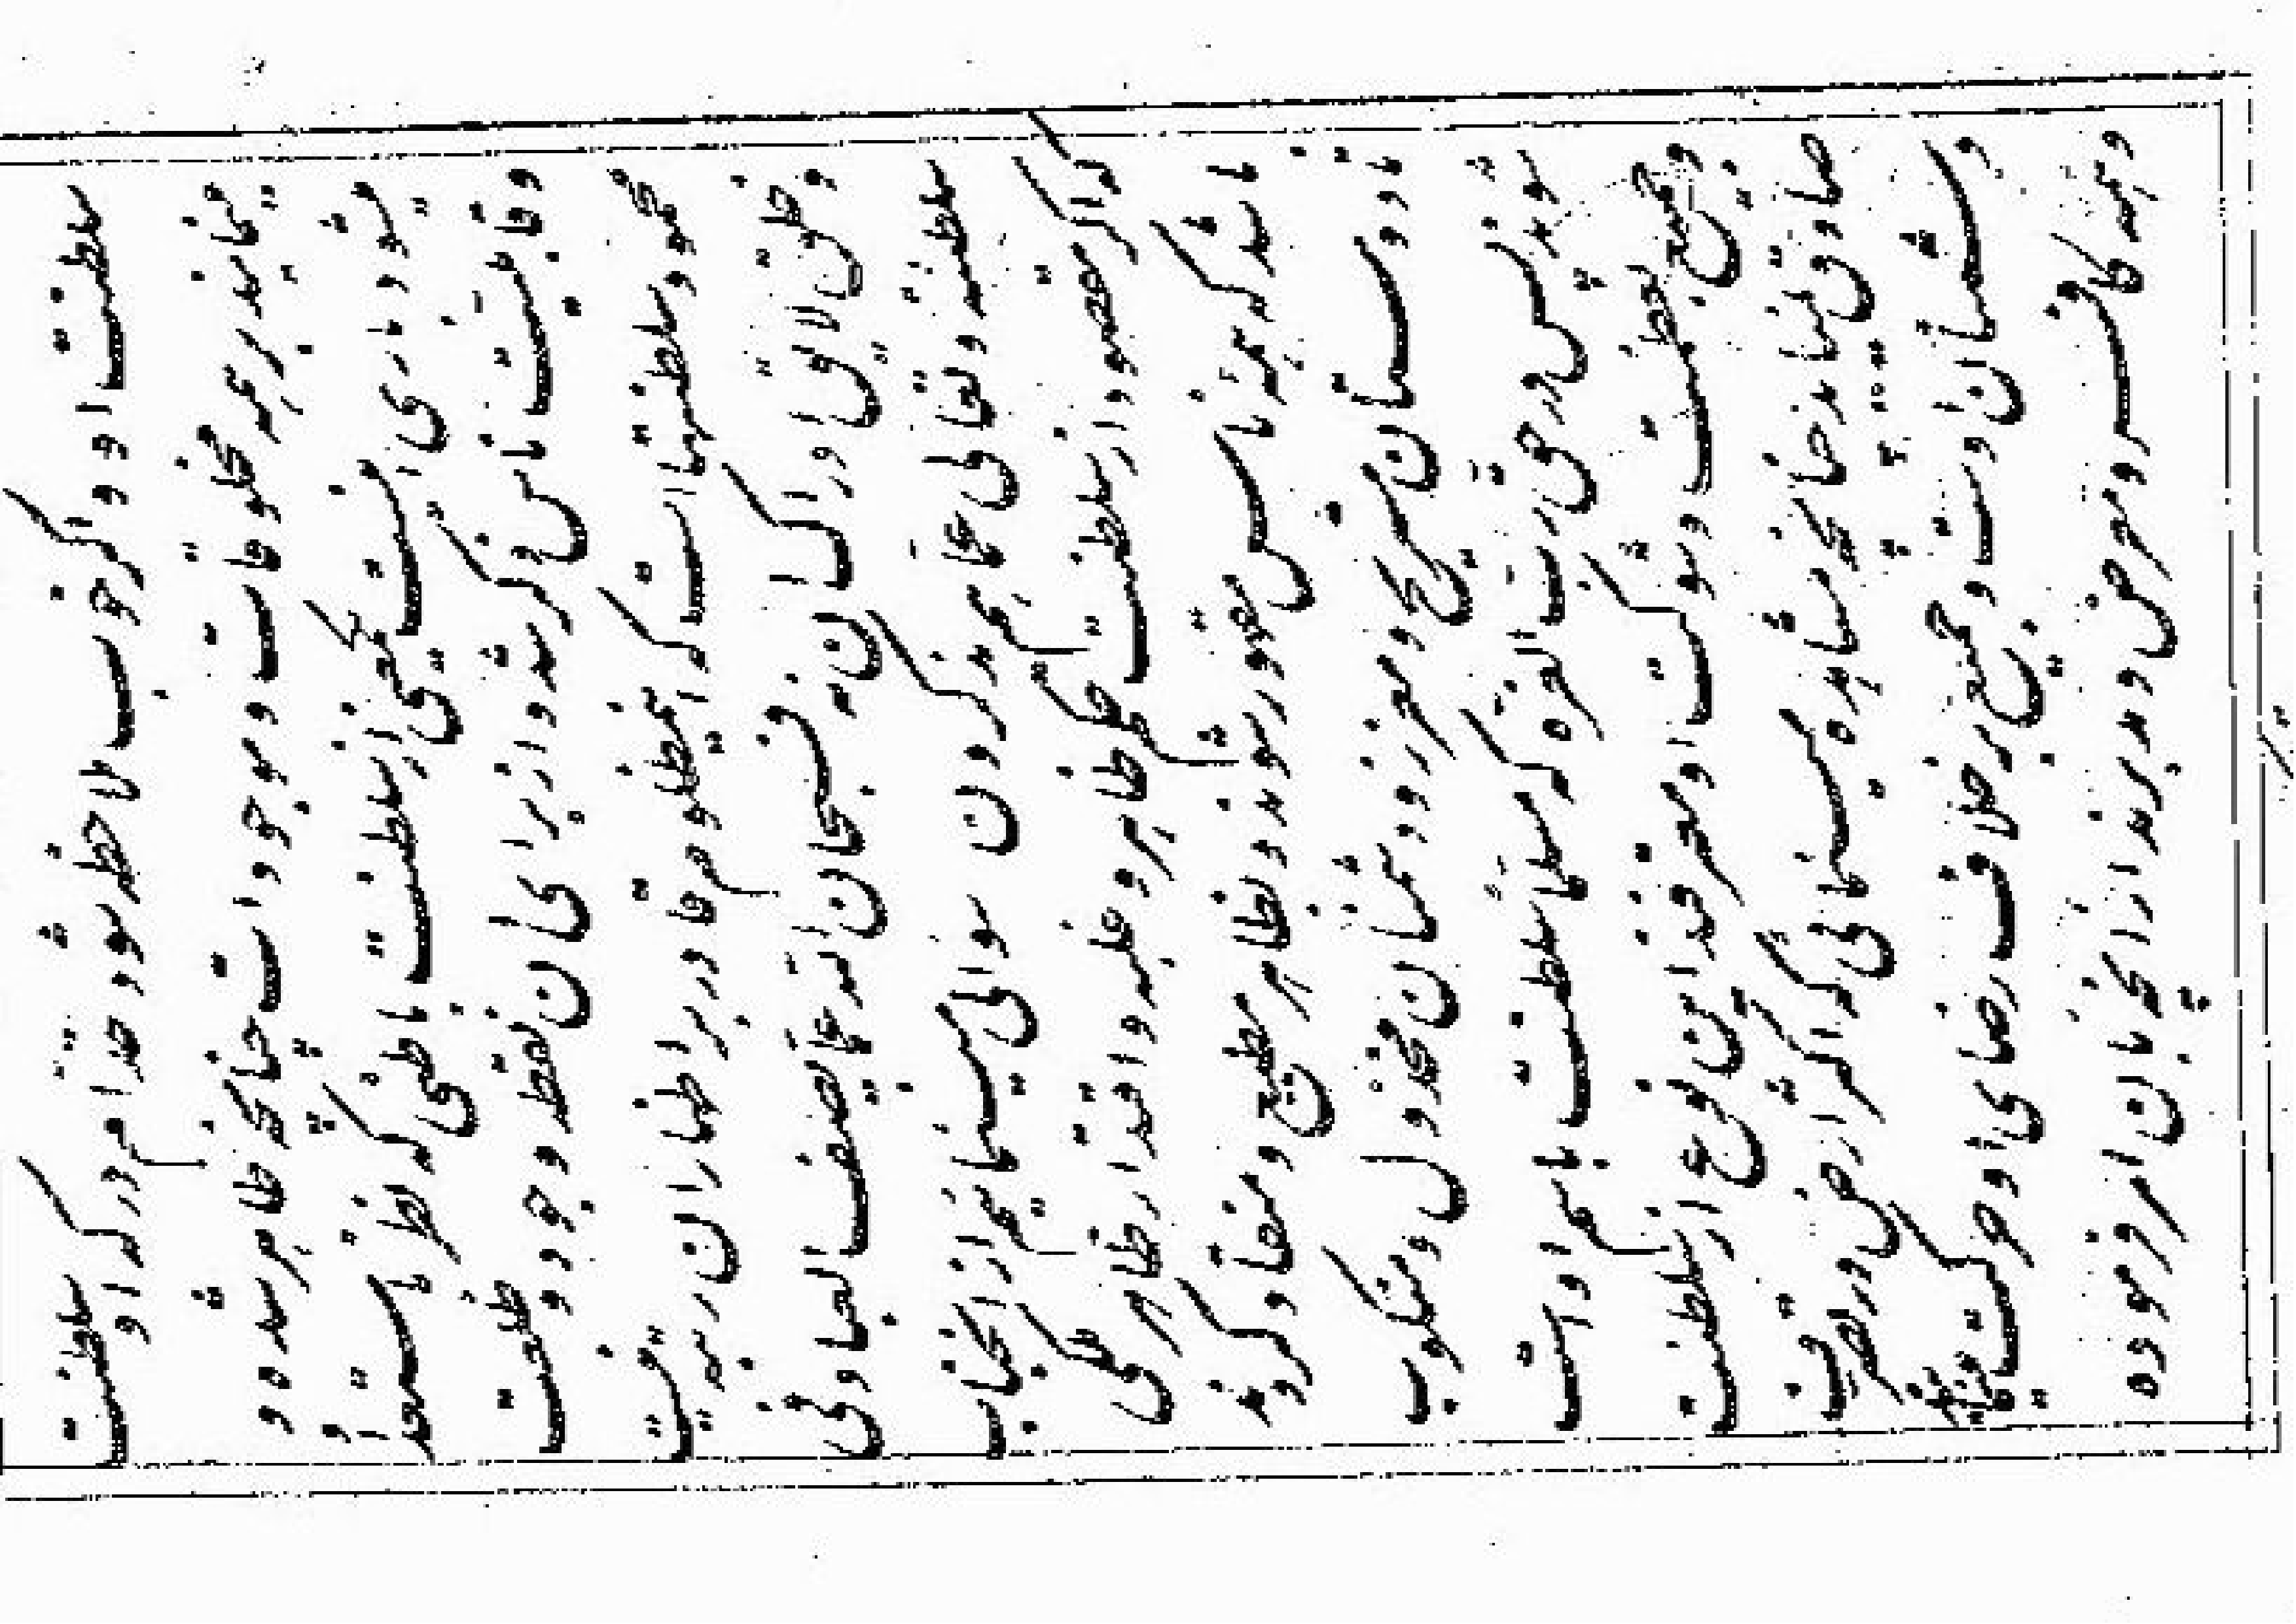 سلطنت او و اگر خوب ملاحظه شود خدام درگه او سلطنت
مینمایند بر همه مخلوقات و موجودات چنانچه ظاهر شده و
میشود باری اینست معنی سلطنت باطنی که نظر باستعداد
و قابلیت ناس ذکر شد و از برای آن نقطه وجود و طلعت
محمود سلطنتها است که این مظلوم قادر بر اظهار آن مراتب نیست
و خلق لایق ادراک آن نه فسبحان الله عما یصف العباد فی
سلطنته و تعالی عما هم یذکرون سؤالی مینمایم از آنجناب
که اگر مقصود از سلطنت حکم ظاهر و غلبه و اقتدار ظاهر ملکی
باشد که همه ناس مقهور شوند و بظاهر مطیع و منقاد گردند
تا دوستان مستریح و معزز و دشمنان مخذول و منکوب
شوند پس در حق رب العزة که مسلما سلطنت باسم اوست
و جمیع بعظمت و شوکت او معترفند این نوع از سلطنت
صادق نمیاید چنانچه مشاهده مینمائی که اکثر ارض در تصرف
دشمنان اوست و جمیع بر خلاف رضای او حرکت مینمایند
و همه کافر و معرض و مدبرند از آنچه بآن امر فرموده